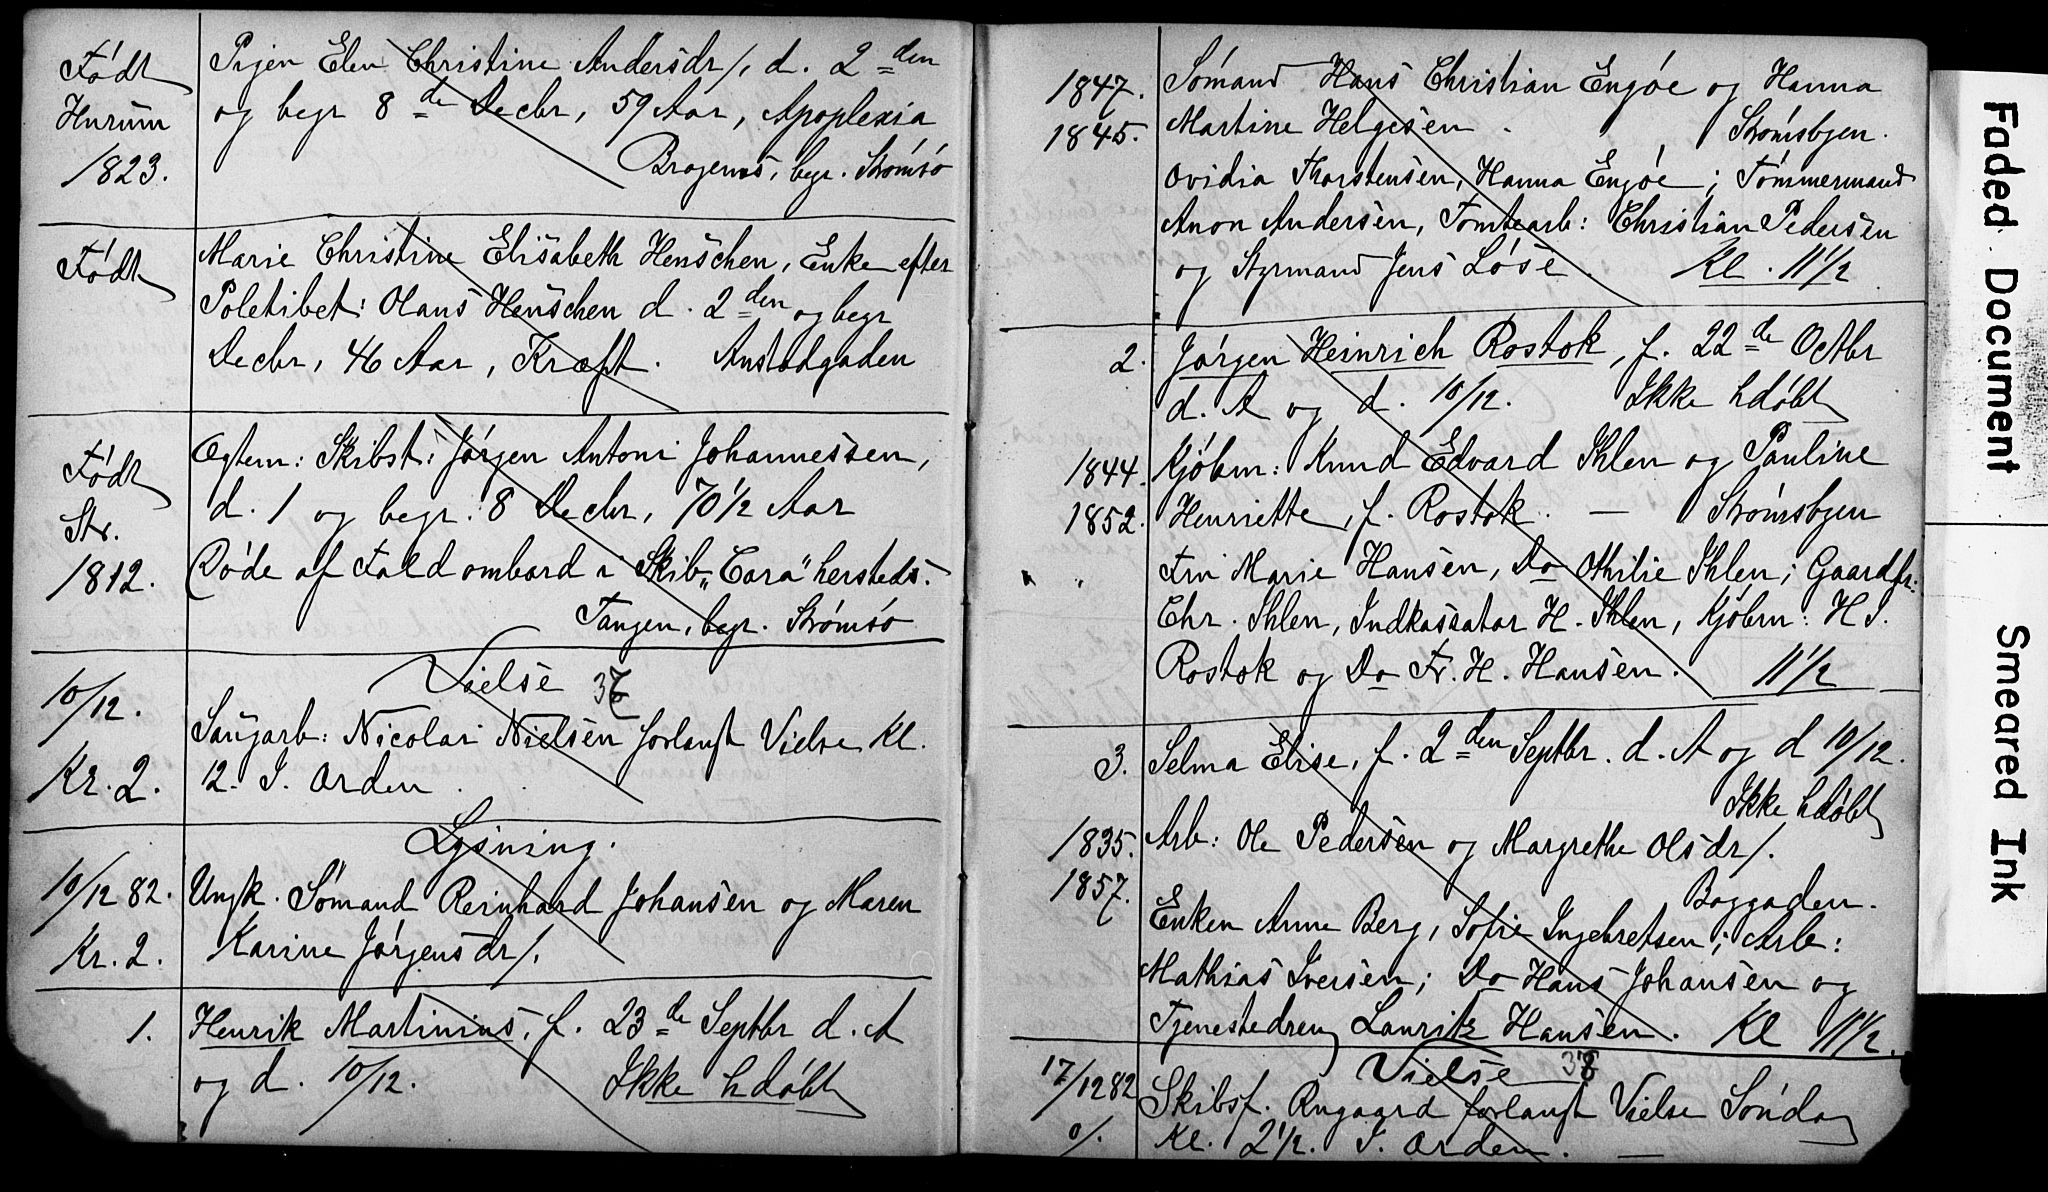 Født
Hurum
1823.
Pigen Elen Christine Andersdr/, d. 2den
og begr 8de Decbr, 59 Aar, Apoplexia
Bragernes, begr. Strømsø
Født
Marie Christine Elisabeth Henschen, Enke efter
Poletibet: Olaus Henschen d. 2den og begr
Decbr, 46 Aar, Kræft. Anstodgaden
Født
Str.
1812.
Ogtem: Skibst: Jørgen Antoni Johannessen,
d. 1 og begr. 8 Decbr, 70 1/2 Aar
Døde af Fald ombord i Skib „Cara" hersteds.
Tangen, begr. Strømsø
Vielse 37
10/12.
Kr. 2.
Saugarb: Nicolai Nielsen forlangt Vielse Kl.
12. I. Orden.
Lysning.
10/12 82.
Kr. 2.
Ungk. Sømand Reinhard Johansen og Maren
Karine Jørgensdr/.
1. Henrik Martinius, f. 23de Septbr d. A
og d. 10/12. Ikke hdøbt
1847. Sømand Hans Christian Engøe og Hanna
1845. Martine Helgesen. Strømsbyen.
Ovidia Thorstensen, Hanna Engøe; Tømmermand
Anon Andersen, Tomtearb: Christian Pedersen
og Styrmand Jens Løse. Kl. 11 1/2
2. Jørgen Heinrich Rostok, f. 22de Octbr
d. A og d. 10/12. Ikke hdøbt
1844. Kjøbm: Knud Edvard Ihlen og Pauline
1852. Henriette, f. Rostok. — Strømsbyen
Fru Marie Hansen, Do Othilie Ihlen; Gaardfr:
Chr. Ihlen, Indkassatar H. Ihlen, Kjøbm: H J.
Rostok og Do Fr. H. Hansen. 11 1/2
3. Selma Elise, f. 2den Septbr. d. A og d 10/12.
Ikke hdøbt
1835. Arb: Ole Pedersen og Margrethe Olsdr/.
1857. Baggaden.
Enken Anne Berg, Sofie Ingebretsen; Arb:
Mathias Iversen; Do Hans Johansen og
Tjenestedreng Lauritz Hansen. Kl 11 1/2.
Vielse 38
17/12 82
0/.
Skibsf. Rugaard forlangt Vielse Søndag
Kl. 2 1/2. I. Orden. —
Faded Document
Smeared Ink